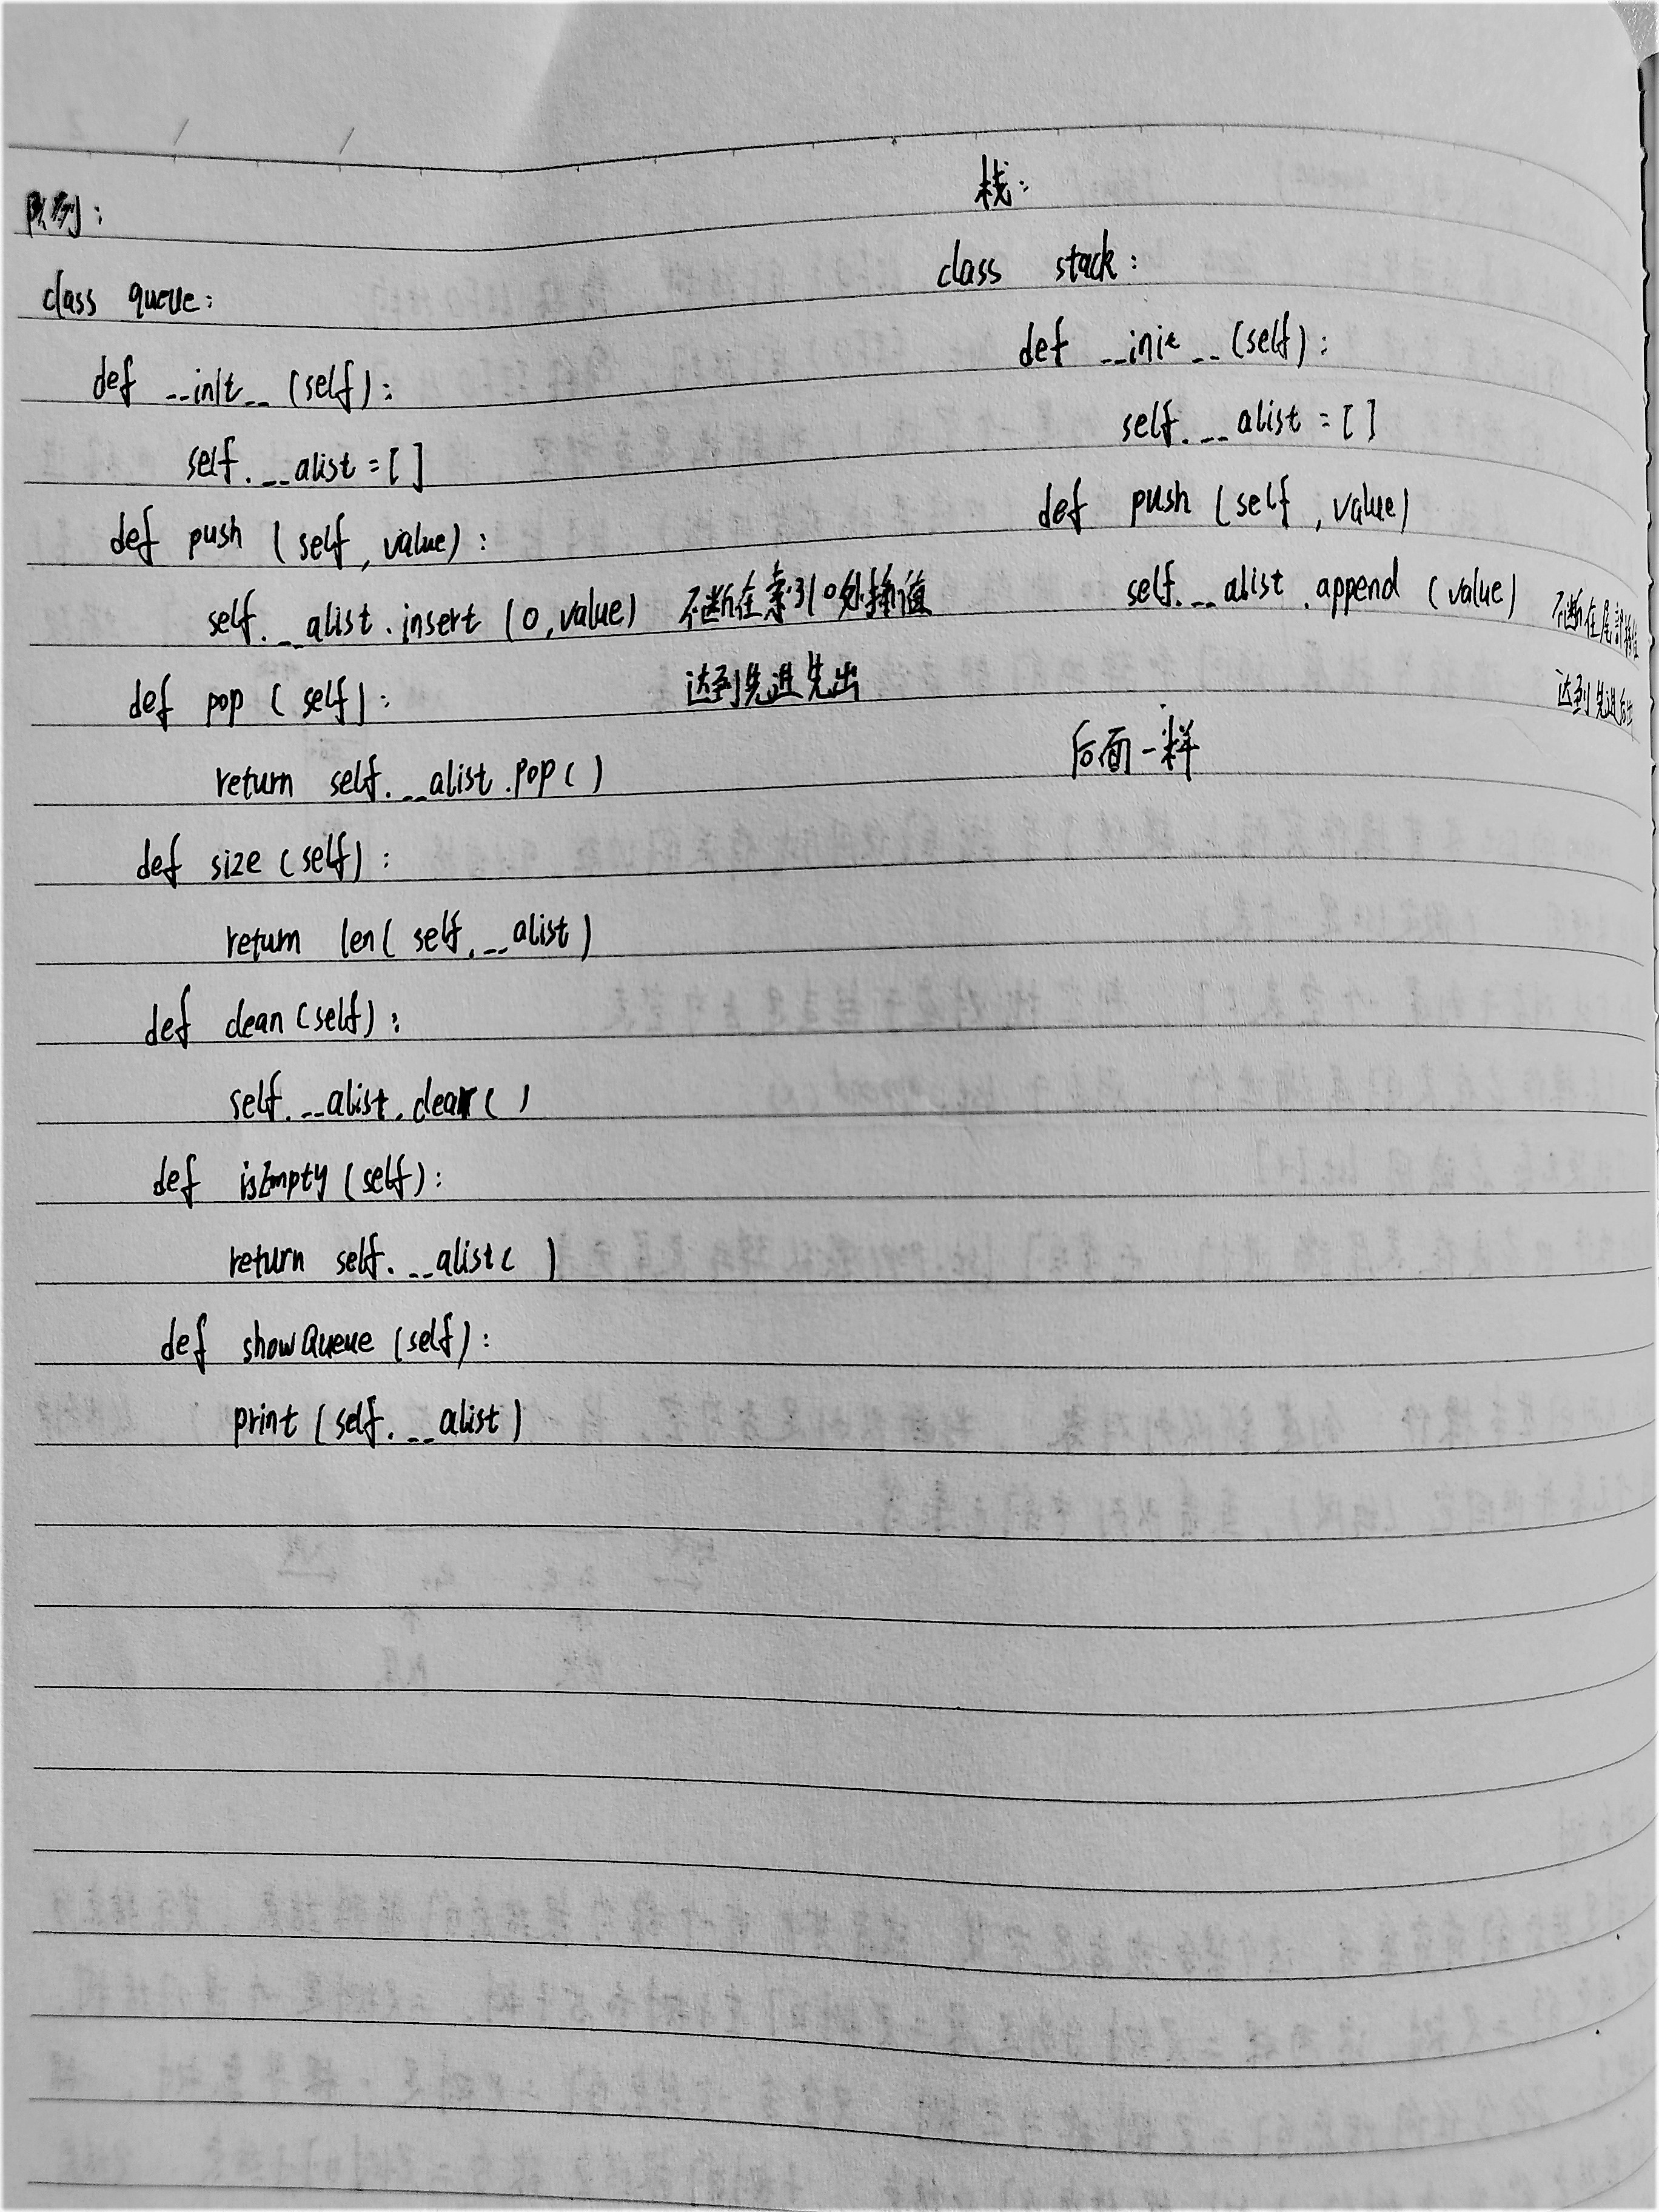 队列：
class queue:
def __init__ (self):
self.__alist = [ ]
def push (self, value):
self.__alist.insert (0, value) 不断在索引0处插值
def pop (self): 达到先进先出
return self.__alist.pop( )
def size (self):
return len( self.__alist )
def clean (self):
self.__alist.clear( )
def isEmpty (self):
return self.__alist( )
def showQueue (self):
print (self.__alist)
栈：
class stack:
def __init__ (self):
self.__alist = [ ]
def push (self, value)
self.__alist.append (value) 不断在尾部插值
达到先进后出
后面一样